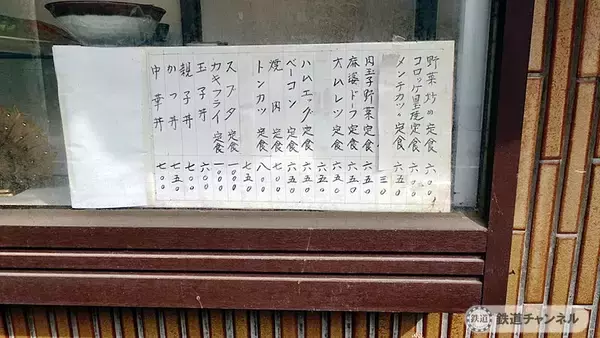 野菜炒め定食 六〇〇
コロッケ目玉焼定食 六〇〇
メンチカツ定食 六五〇
三〇
肉玉子野菜定食 六五〇
麻婆ドーフ定食 六五〇
オムレツ定食 六五〇
ハムエッグ定食 六五〇
ベーコン定食 六五〇
焼肉定食 七〇〇
トンカツ定食 八〇〇
七五〇
スブタ定食 一〇〇〇
カキフライ定食 一〇〇〇
玉子丼 六〇〇
親子丼 七〇〇
かつ丼 七五〇
中華丼 七〇〇
鉄道チャンネル